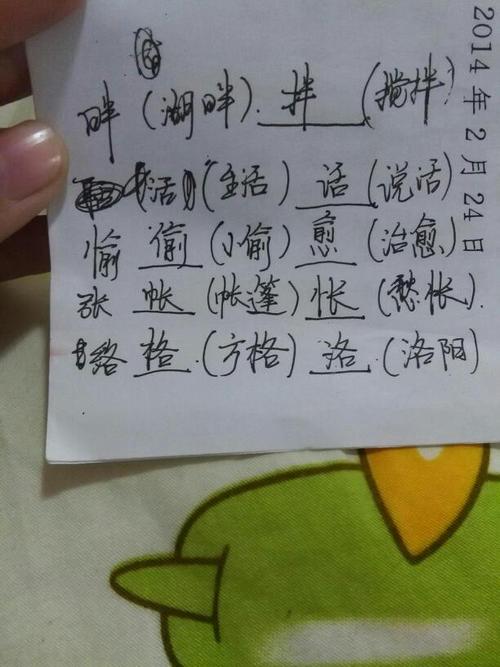 2014年2月24日
畔 (湖畔). 拌 (搅拌)
活 (生活) 话 (说话)
愉 偷 (小偷) 愈 (治愈)
张 帐 (帐篷) 怅 (愁怅).
络 格.(方格) 洛.(洛阳)